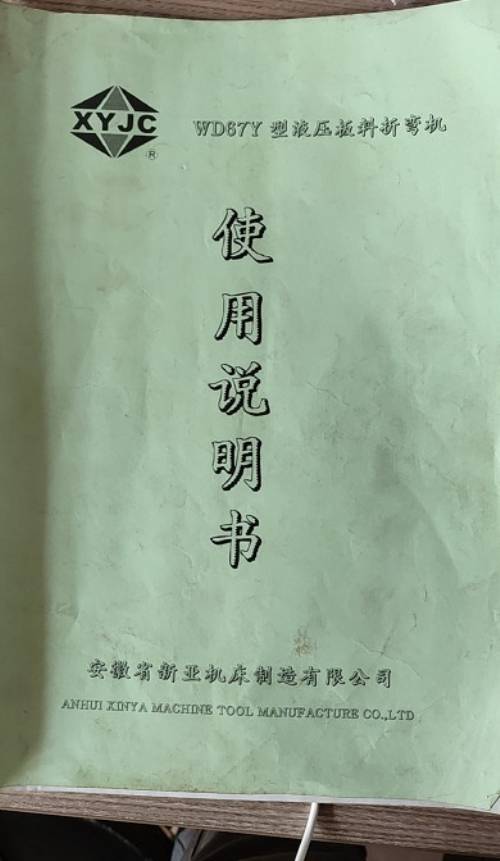 XYJC
®
WD67Y 型液压板料折弯机
使用说明书
安徽省新亚机床制造有限公司
ANHUI XINYA MACHINE TOOL MANUFACTURE CO.,LTD